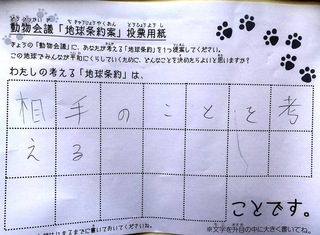 動物会議「地球条約案」投票用紙
きょうの「動物会議」に、あなたが考える「地球条約」を1つ提案してください。
この地球でみんなが平和にくらしていくために、どんなことを決めたらよいと思いますか?
わたしの考える「地球条約」は、
相手のことを考
える
ことです。
※文字を升目の中に大きく書いてね。
までに書いておいてくださいね。